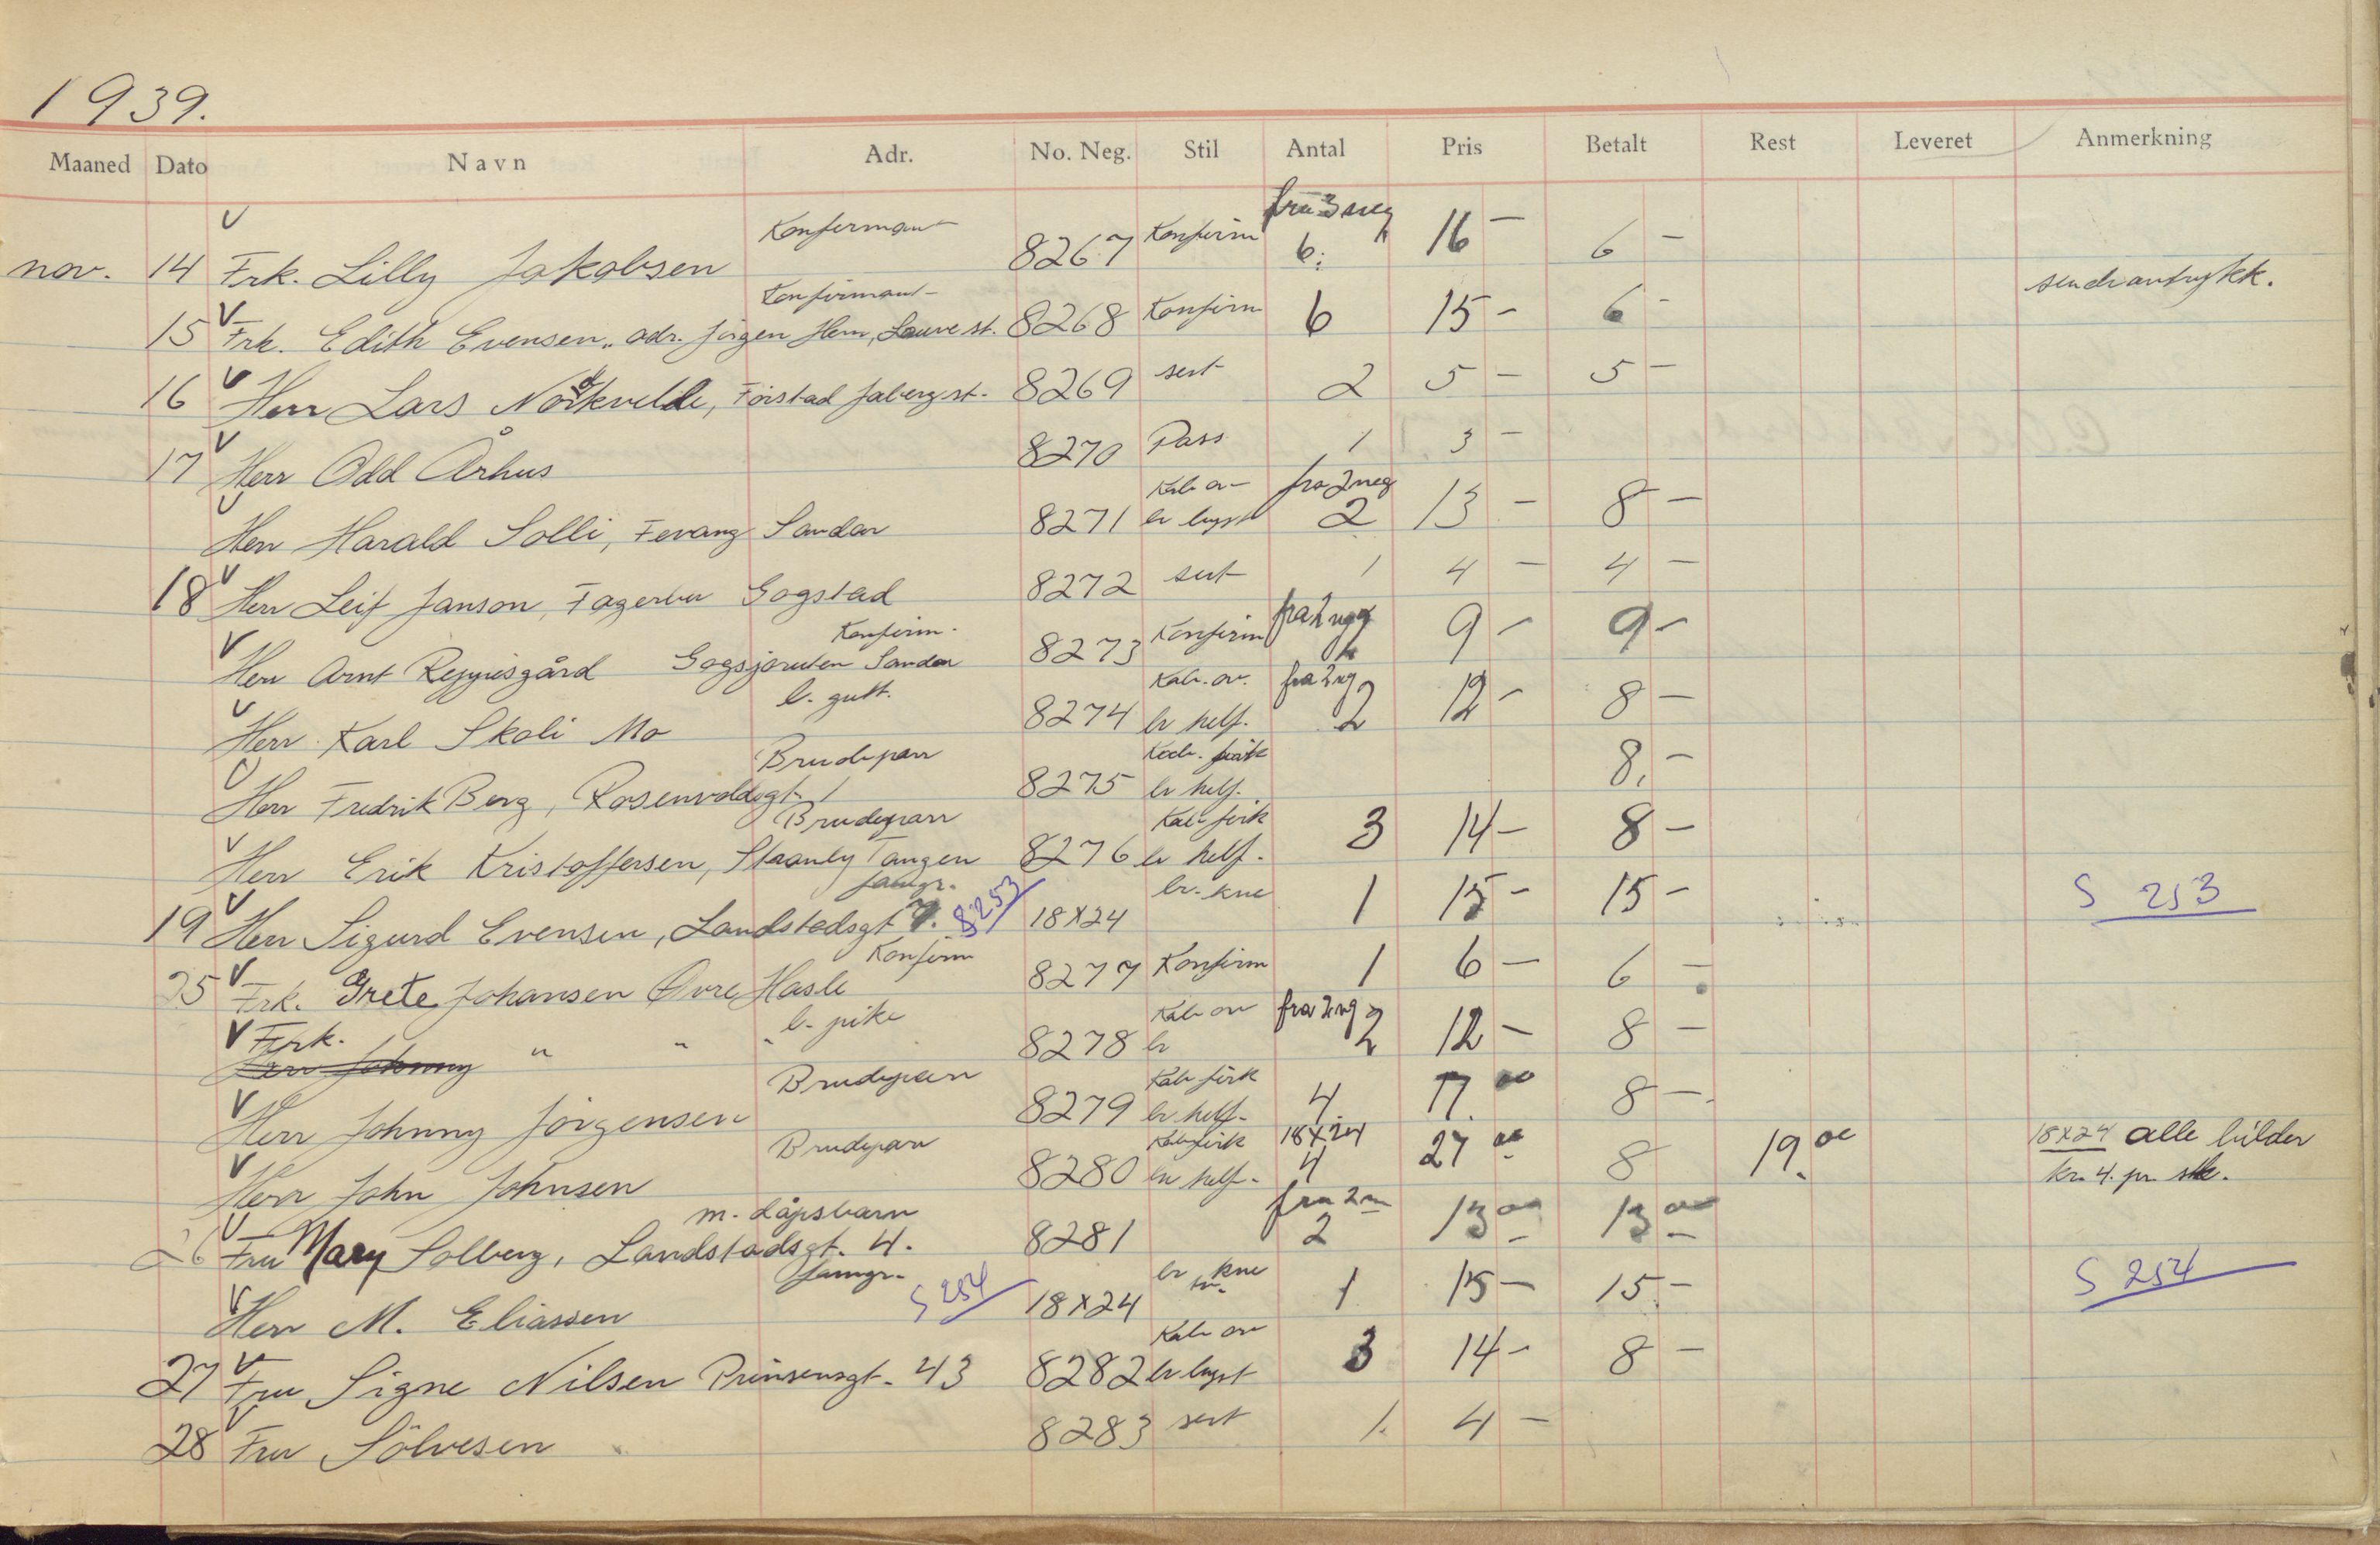 1939.
Maaned Dato Navn Adr. No. Neg. Stil Antal Pris Betalt Rest Leveret Anmerkning
Konfermant fra 3 neg
nov. 14 Frk. Lilly Jakobsen 8267 Konfirm 6. 16 — 6 —
Konfirmant
15 Frk. Edith Evensen, adr. Jörgen Hem, Lauve st. 8268 Konfirm 6 15 — 6 —
16 Herr Lars 8269 sert 2 5 — 5 —
17 Herr Odd Århus 8270 Pass 1 3 —
Kab ov fra 2 neg
Herr Harald Solli, Fevang Sandar 8271 br bryst 2 13 — 8 —
18 Herr Leif Janson, Gogstad 8272 sert 1 4 — 4 —
Konfirm.
Herr Arnt 8273 Konfirm 9 — 9 —
l. gutt. Kab. ov. fra 2 neg
Herr Karl Skoli Mo 8274 br helf. 2 12 — 8 —
Brudepar
Herr Fredrik Berg, Rosenvoldsgt. 1 8275 br helf. 8. —
Brudepar Kab firk
Herr Erik Kristoffersen, Tangen 8276 br helf. 3 14 — 8 —
famgr. br. kne
19 Herr Sigurd Evensen, Landstadsgt 7. S 253 18x24 1 15 — 15 — S 253
Konfirm
25 Frk. Grete Johansen Övre Hasle 8277 Konfirm 1 6 — 6 —
l. pike Kab ov fra 2 neg
Frk. " " " 8278 br 2 12 — 8 —
Herr Johnny
Brudepar Kab firk
Herr Johnny Jörgensen 8279 br helf. 4. 17.00 8 —
Brudepar Kab firk 18x24 18x24 alle bilder
Herr John Johnsen 8280 br helf. 4 27 00 8 19.00 kr. 4. pr. stk.
m. dåpsbarn
26 Fru Mary Solberg, Landstadsgt. 4. 8281 2 13 00 13 00
famgr. br kne
Herr M. Eliassen S 254 18x24 1 15 — 15 — S 254
Kab ov
27 Fru Signe Nilsen Prinsensgt. 43 8282 br bryst 3 14 — 8 —
28 Fru Sölvesen 8283 sert 1. 4 —